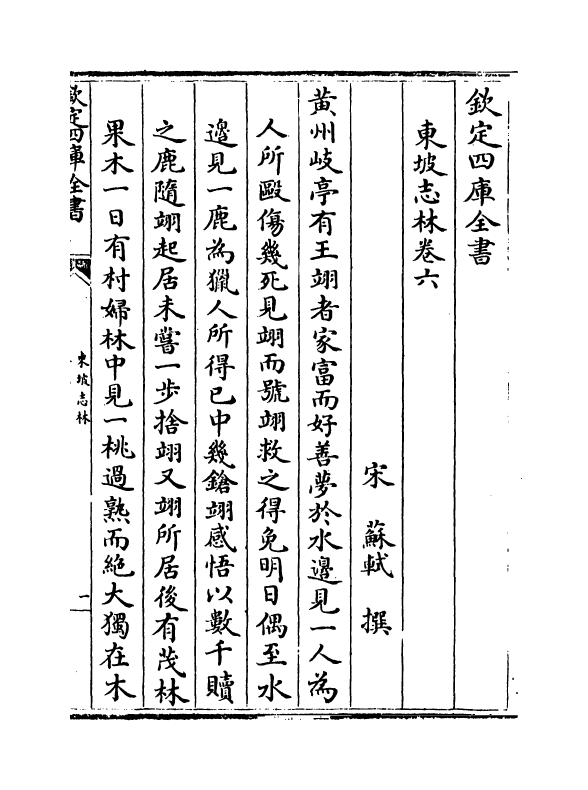 欽定四庫全書
東坡志林卷六
宋 蘇軾 撰
黄州岐亭有王翊者家富而好善夢於水邊見一人為
人所毆傷幾死見翊而號翊救之得免明日偶至水
邊見一鹿為獵人所得已中幾鎗翊感悟以數千贖
之鹿隨翊起居未嘗一步捨翊又翊所居後有茂林
果木一日有村婦林中見一桃過熟而絶大獨在木
欽定四庫全書
東坡志林
一